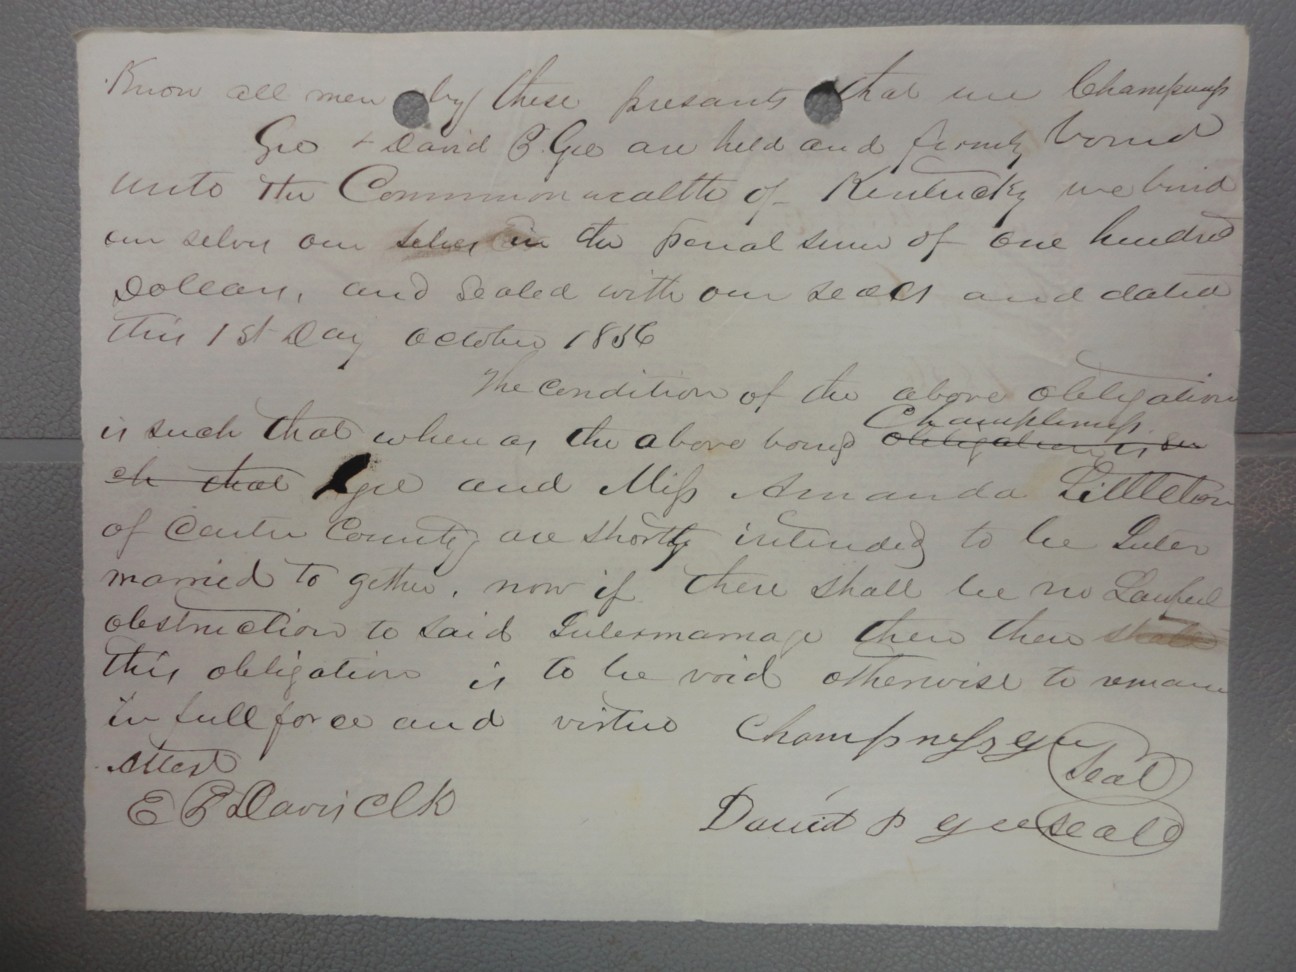 Know all men by these presants that we Champness
Gee + David P. Gee are held and firmly bound
unto the Commonwealth of Kentucky we bind
our selvs our selves in the penal sum of one hundred
Dollars, and sealed with our seals and dated
this 1st Day October 1856
The Condition of the above obligation
is such that when as the above bond Champness obligation is su
ch that Gee and Miss Amanda Littleton
of Carter County are shortly intended to be Inter
married to gether, now if there shall be no Lawful
obstruction to said Intermarriage then then
this obligation is to be void otherwise to remain
in full force and virtue Champness Gee Seal
Attest
E P Davis Clk David P Gee Seal